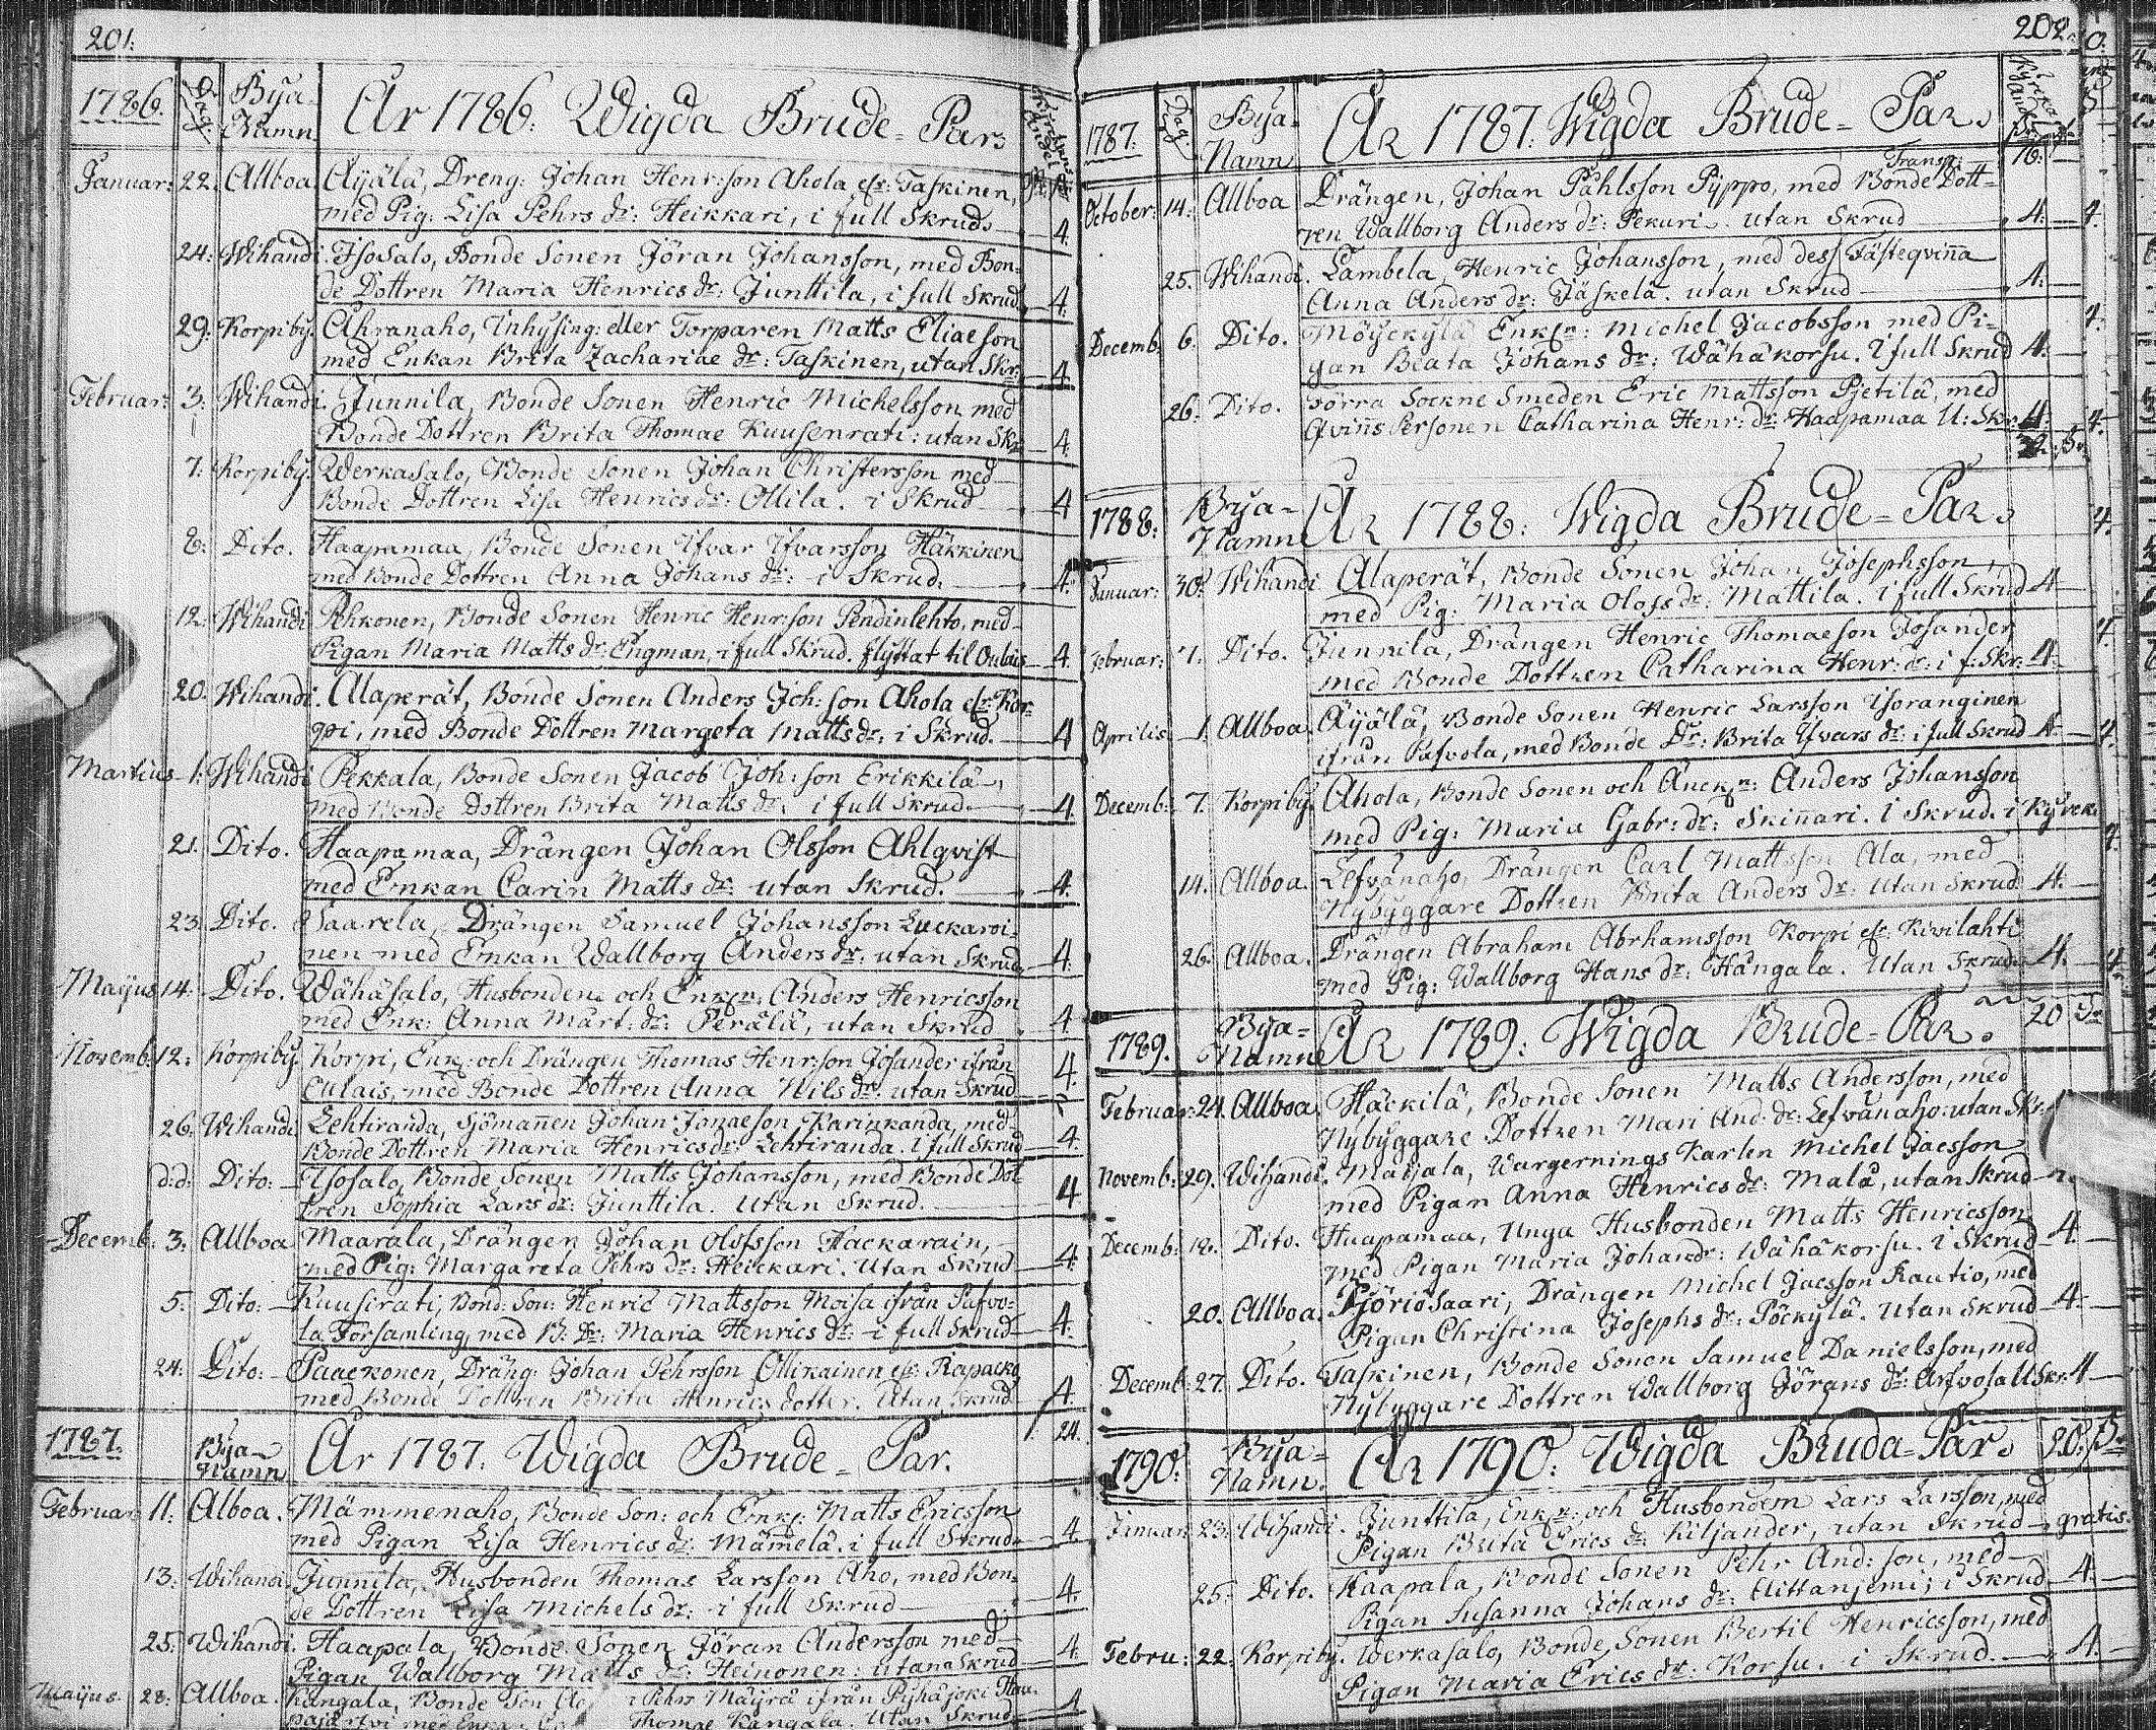 201.
1786. Dag. Bya-Namn. År 1786. Wigda Brude-Par.
Januar: 22. Allboa. Äyälä, Dreng: Johan Henr:son Ahola eft: Taskinen,
med Pig: Lisa Pehrs dr: Heikkari, i full Skrud. 4.
24: Wihandi. Isosalo, Bonde Sonen Jöran Johansson, med Bon-
de Dottren Maria Henrics dr: Junttila, i full Skrud. 4.
29: Korpiby. Ahranaho, Inhysing: eller Torparen Matts Eliaeson
med Enkan Brita Zachariae dr: Taskinen, utan Skr: 4
Februar: 3: Wihandi. Junnila, Bonde Sonen Henric Michelsson med
Bonde Dottren Brita Thomae Kuusenrati: utan Skr: 4.
7: Korpiby. Werkasalo, Bonde Sonen Johan Christersson med
Bonde Dottren Lisa Henrics dr: Ollila. i Skrud 4
8: Dito. Haapamaa, Bonde Sonen Ifvar Ifvarsson Häkkinen
med Bonde Dottren Anna Johans dr: i Skrud. 4.
12: Wihandi Pehkonen, Bonde Sonen Henric Henr:son Pendinlehto, med
Pigan Maria Matts dr: Engman, i full Skrud. flyttat til Oulais 4.
20. Wihandi. Alaperät, Bonde Sonen Anders Joh:son Ahola eft: Kor-
pi, med Bonde Dottren Margeta Matts dr: i Skrud. 4
Martius 1: Wihandi Pekkala, Bonde Sonen Jacob Joh:son Erikkilä,
med Bonde Dottren Brita Matts dr: i full Skrud. 4.
21. Dito. Haapamaa, Drängen Johan Olsson Ahlqvist
med Enkan Carin Matts dr: utan Skrud. 4.
23. Dito. Saarela, Drängen Samuel Johansson Luckaroi-
nen med Enkan Wallborg Anders dr: utan Skrud. 4.
Majus 14. Dito. Wähäsalo, Husbonden och Enkl: Anders Henricsson
med Enk: Anna Märt: dr: Perälä, utan Skrud 4.
Novemb: 12: Korpiby. Korpi, Enkl: och Drängen Thomas Henr:son Josander ifrån
Oulais, med Bonde Dottren Anna Nils dr: utan Skrud 4.
26: Wihandi Lehtiranda, Sjömannen Johan Jonaeson Karinkanda, med
Bonde Dottren Maria Henrics dr: Lehtiranda. i full Skrud 4.
d:d: Dito: Isosalo, Bonde Sonen Matts Johansson, med Bonde Dot-
tren Sophia Lars dr: Junttila. Utan Skrud. 4
Decemb: 3: Allboa Maarala, Drängen Johan Olofsson Hackarain,
med Pig: Margareta Pehrs dr: Heickari. Utan Skrud 4.
5. Dito: Kuusirati, Bond: Son: Henric Mattsson Moisa ifrån Pafvo-
la Församling, med B: Dr: Maria Henrics dr: i full Skrud 4.
24: Dito: Paackonen, Dräng: Johan Pehrsson Ollikainen eft: Rapacko
med Bonde Dottren Brita Henrics dotter. Utan Skrud 4.
24.
1787. Bya-Namn År 1787. Wigda Brude-Par.
Februar: 11: Alboa. Mämmenaho, Bonde Son: och Enkl: Matts Ericsson
med Pigan Lisa Henrics dr: Mämelä. i full Skrud 4.
13: Wihandi. Junnila, Husbonden Thomas Larsson Aho, med Bon-
de Dottren Lisa Michels dr: i full Skrud 4.
25: Wihandi. Haapala, Bonde Sonen Jöran Andersson med
Pigan Wallborg Matts dr: Heinonen: utan Skrud 4.
Majus. 28: Allboa. Kangala, Bonde Son Pehrs Mäyrä ifrån Pyhäjoki
med Enka Thomae Kangala. Utan Skrud 4
202.
1787. Dag. Bya-Namn År 1787. Wigda Brude-Par.
Transp: 16.
October: 14: Allboa Drängen, Johan Påhlsson Pyppo, med Bonde Dott-
ren Wallborg Anders dr: Pekuri. utan Skrud 4.
25. Wihandi. Lambela, Henric Johansson, med dess Fästeqvinna
Anna Anders dr: Jäskelä. utan Skrud 4.
Decemb: 6. Dito. Möyckylä Enkl:n: Michel Jacobsson med Pi-
gan Beata Johans dr: Wähäkorsu. I full Skrud 4.
26. Dito. Förra Sockne Smeden Eric Mattsson Pjetilä, med
Qvinns Personen Catharina Henr: dr: Haapamaa U: Skr: 4.
1788: Bya-Namn År 1788: Wigda Brude-Par.
Januar: 30: Wihandi Alaperät, Bonde Sonen Johan Josephsson,
med Pig: Maria Olofs dr: Mattila. i full Skrud 4
Februar: 7. Dito. Junnila, Drängen Henric Thomaeson Josander
med Bonde Dottren Catharina Henr: dr: i f: Skr: 4.
Aprilis 1. Allboa. Äyälä, Bonde Sonen Henric Larsson Isoranginen
ifrån Pafvola, med Bonde Dr: Brita Ifvars dr: i full Skrud 4
Decemb: 7. Korpiby. Ahola, Bonde Sonen och Änckl:n: Anders Johansson
med Pig: Maria Gabr: dr: Skinnari. I Skrud. i Kyrck:
14. Allboa. Lefvänaho, Drängen Carl Mattsson Ala, med
Nybyggare Dottren Brita Anders dr: Utan Skrud 4.
26. Allboa. Drängen Abraham Abrhamsson Korpi eft: Kivilahti
med Pig: Wallborg Hans dr: Hångala. Utan Skrud 4.
20
1789. Bya-Namn År 1789: Wigda Brude-Par.
Februar: 24. Allboa. Häckilä, Bonde Sonen Matts Andersson, med
Nybyggare Dottren Mari And: dr: Lefvänaho: utan Skr:
Novemb: 29. Wihandi. Maijala, Wargernings Karlen Michel Jacsson
med Pigan Anna Henrics dr: Mala, utan Skrud
Decemb: 18. Dito. Haapamaa, Unga Husbonden Matts Henricsson
med Pigan Maria Johans dr: Wähäkorsu. i Skrud 4.
20. Allboa. Pjöriösaari, Drängen Michel Jacsson Rautio, med
Pigan Christina Josephs dr: Pöckylä. Utan Skrud 4.
Decemb: 27. Dito. Taskinen, Bonde Sonen Samuel Danielsson, med
Nybyggare Dottren Wallborg Jörans dr: Arfvola U Skr: 4
20.
1790. Bya-Namn. År 1790: Wigda Bruda-Par.
Januar: 23. Wihandi. Junttila, Enkl:n: och Husbonden Lars Larsson, med
Pigan Brita Erics dr: Kiljander, utan Skrud gratis.
25. Dito. Haapala, Bonde Sonen Pehr And:son, med
Pigan Susanna Johans dr: Aittanjemi; i Skrud 4.
Febru: 22: Korpiby. Werkasalo, Bonde Sonen Bertil Henricsson, med
Pigan Maria Erics dr: Korsu. i Skrud. 4.